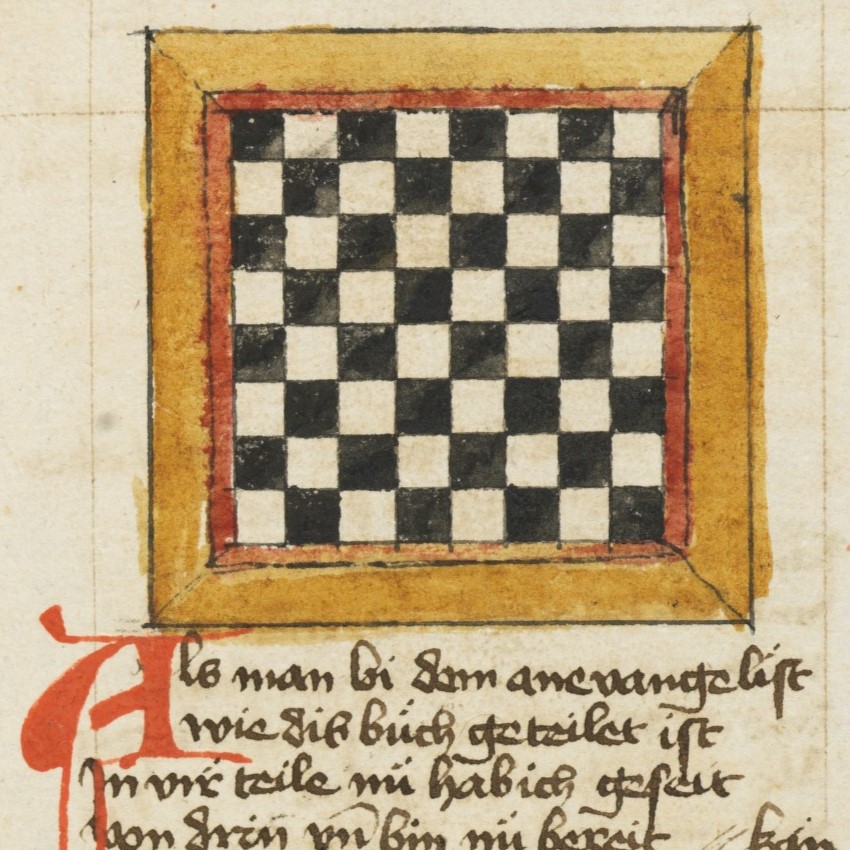 Als man bi dem anevange list
wie dis bůch geteilet ist
In vir teile nü hab ich geseit
von drin vn̄ bin nü bereit